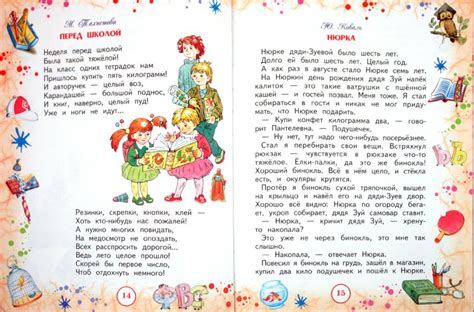 М. Тахистова
ПЕРЕД ШКОЛОЙ
Неделя перед школой
Была такой тяжёлой!
На класс одних тетрадок нам
Пришлось купить пять килограмм!
И авторучек — целый воз,
Карандашей — большой поднос,
И книг, наверно, целый пуд!
Уже и ноги не идут...
Резинки, скрепки, кнопки, клей —
Хоть кто-нибудь нас пожалей!
А нужно многих повидать,
На медосмотр не опоздать,
Всех расспросить дорогой...
Ведь лето целое прошло!
Скорей бы первое число,
Чтоб отдохнуть немного!
14
Ю. Коваль
НЮРКА
Нюрке дяди-Зуевой было шесть лет.
Долго ей было шесть лет. Целый год.
А как раз в августе стало Нюрке семь лет.
На Нюркин день рождения дядя Зуй напёк
калиток — это такие ватрушки с пшённой
кашей — и гостей позвал. Меня тоже. Я стал
собираться в гости и никак не мог приду-
мать, что Нюрке подарить.
— Купи конфет килограмма два, — гово-
рит Пантелевна. — Подушечек.
— Ну нет, тут надо чего-нибудь посерьёзнее.
Стал я перебирать свои вещи. Встряхнул
рюкзак — чувствуется в рюкзаке что-то
тяжёлое. Ёлки-палки, да это же бинокль!
Хороший бинокль. Всё в нём цело, и стёкла
есть, и окуляры крутятся.
Протёр я бинокль сухой тряпочкой, вышел
на крыльцо и навёл его на дяди-Зуев двор.
Хорошо всё видно: Нюрка по огороду бега-
ет, укроп собирает, дядя Зуй самовар ставит.
— Нюрка, — кричит дядя Зуй, — а хрену-
то накопала?
Это уже не через бинокль, это мне так
слышно.
— Накопала, — отвечает Нюрка.
Повесил я бинокль на грудь, зашёл в магазин,
купил два кило подушечек и пошёл к Нюрке.
15